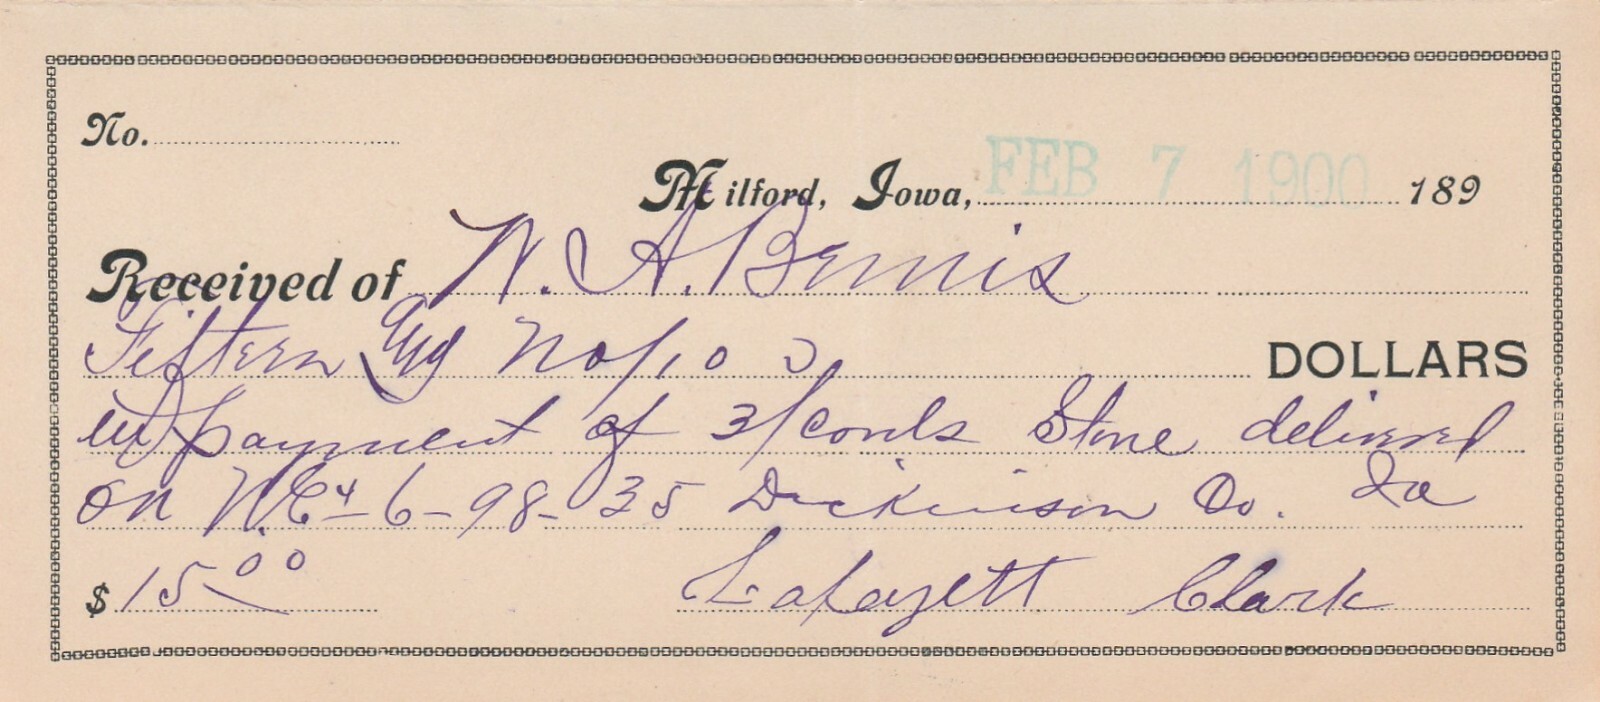 No.
Milford, Iowa, FEB 7 1900 189
Received of N. A. Bemis
Fifteen and no/100 DOLLARS
in payment of 3 cords Stone delivered
on N.E 4 - 6 - 98 - 35 Dickinson Co. Ia
$ 15.00 Lafayett Clark